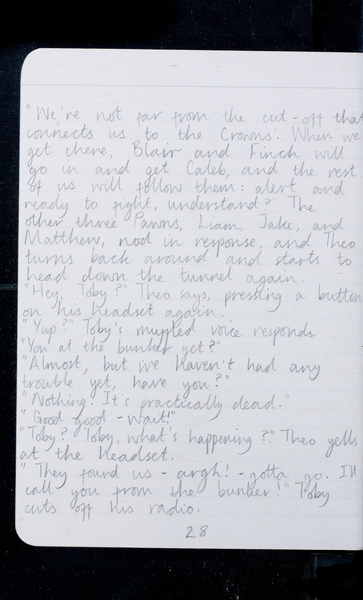 "We're not far from the cut-off that
connects us to the Crowns. When we
get there, Blair and Finch will
go in and get Caleb, and the rest
of us will follow them: alert and
ready to fight, understand?" The
other three Pawns, Liam, Jake, and
Matthew, nod in response, and Theo
turns back around and starts to
head down the tunnel again.
"Hey, Toby?" Theo says, pressing a button
on his headset again.
"Yup?" Toby's muffled voice responds.
"You at the bunker yet?"
"Almost, but i've haven't had any
trouble yet, have you?"
"Nothing. It's practically dead."
"Good good - wait!"
"Toby? Toby, what's happening?" Theo yells
at the headset.
"They found us - argh! - gotta go. I'll
call you from the bunker!" Toby
cuts off his radio.
28